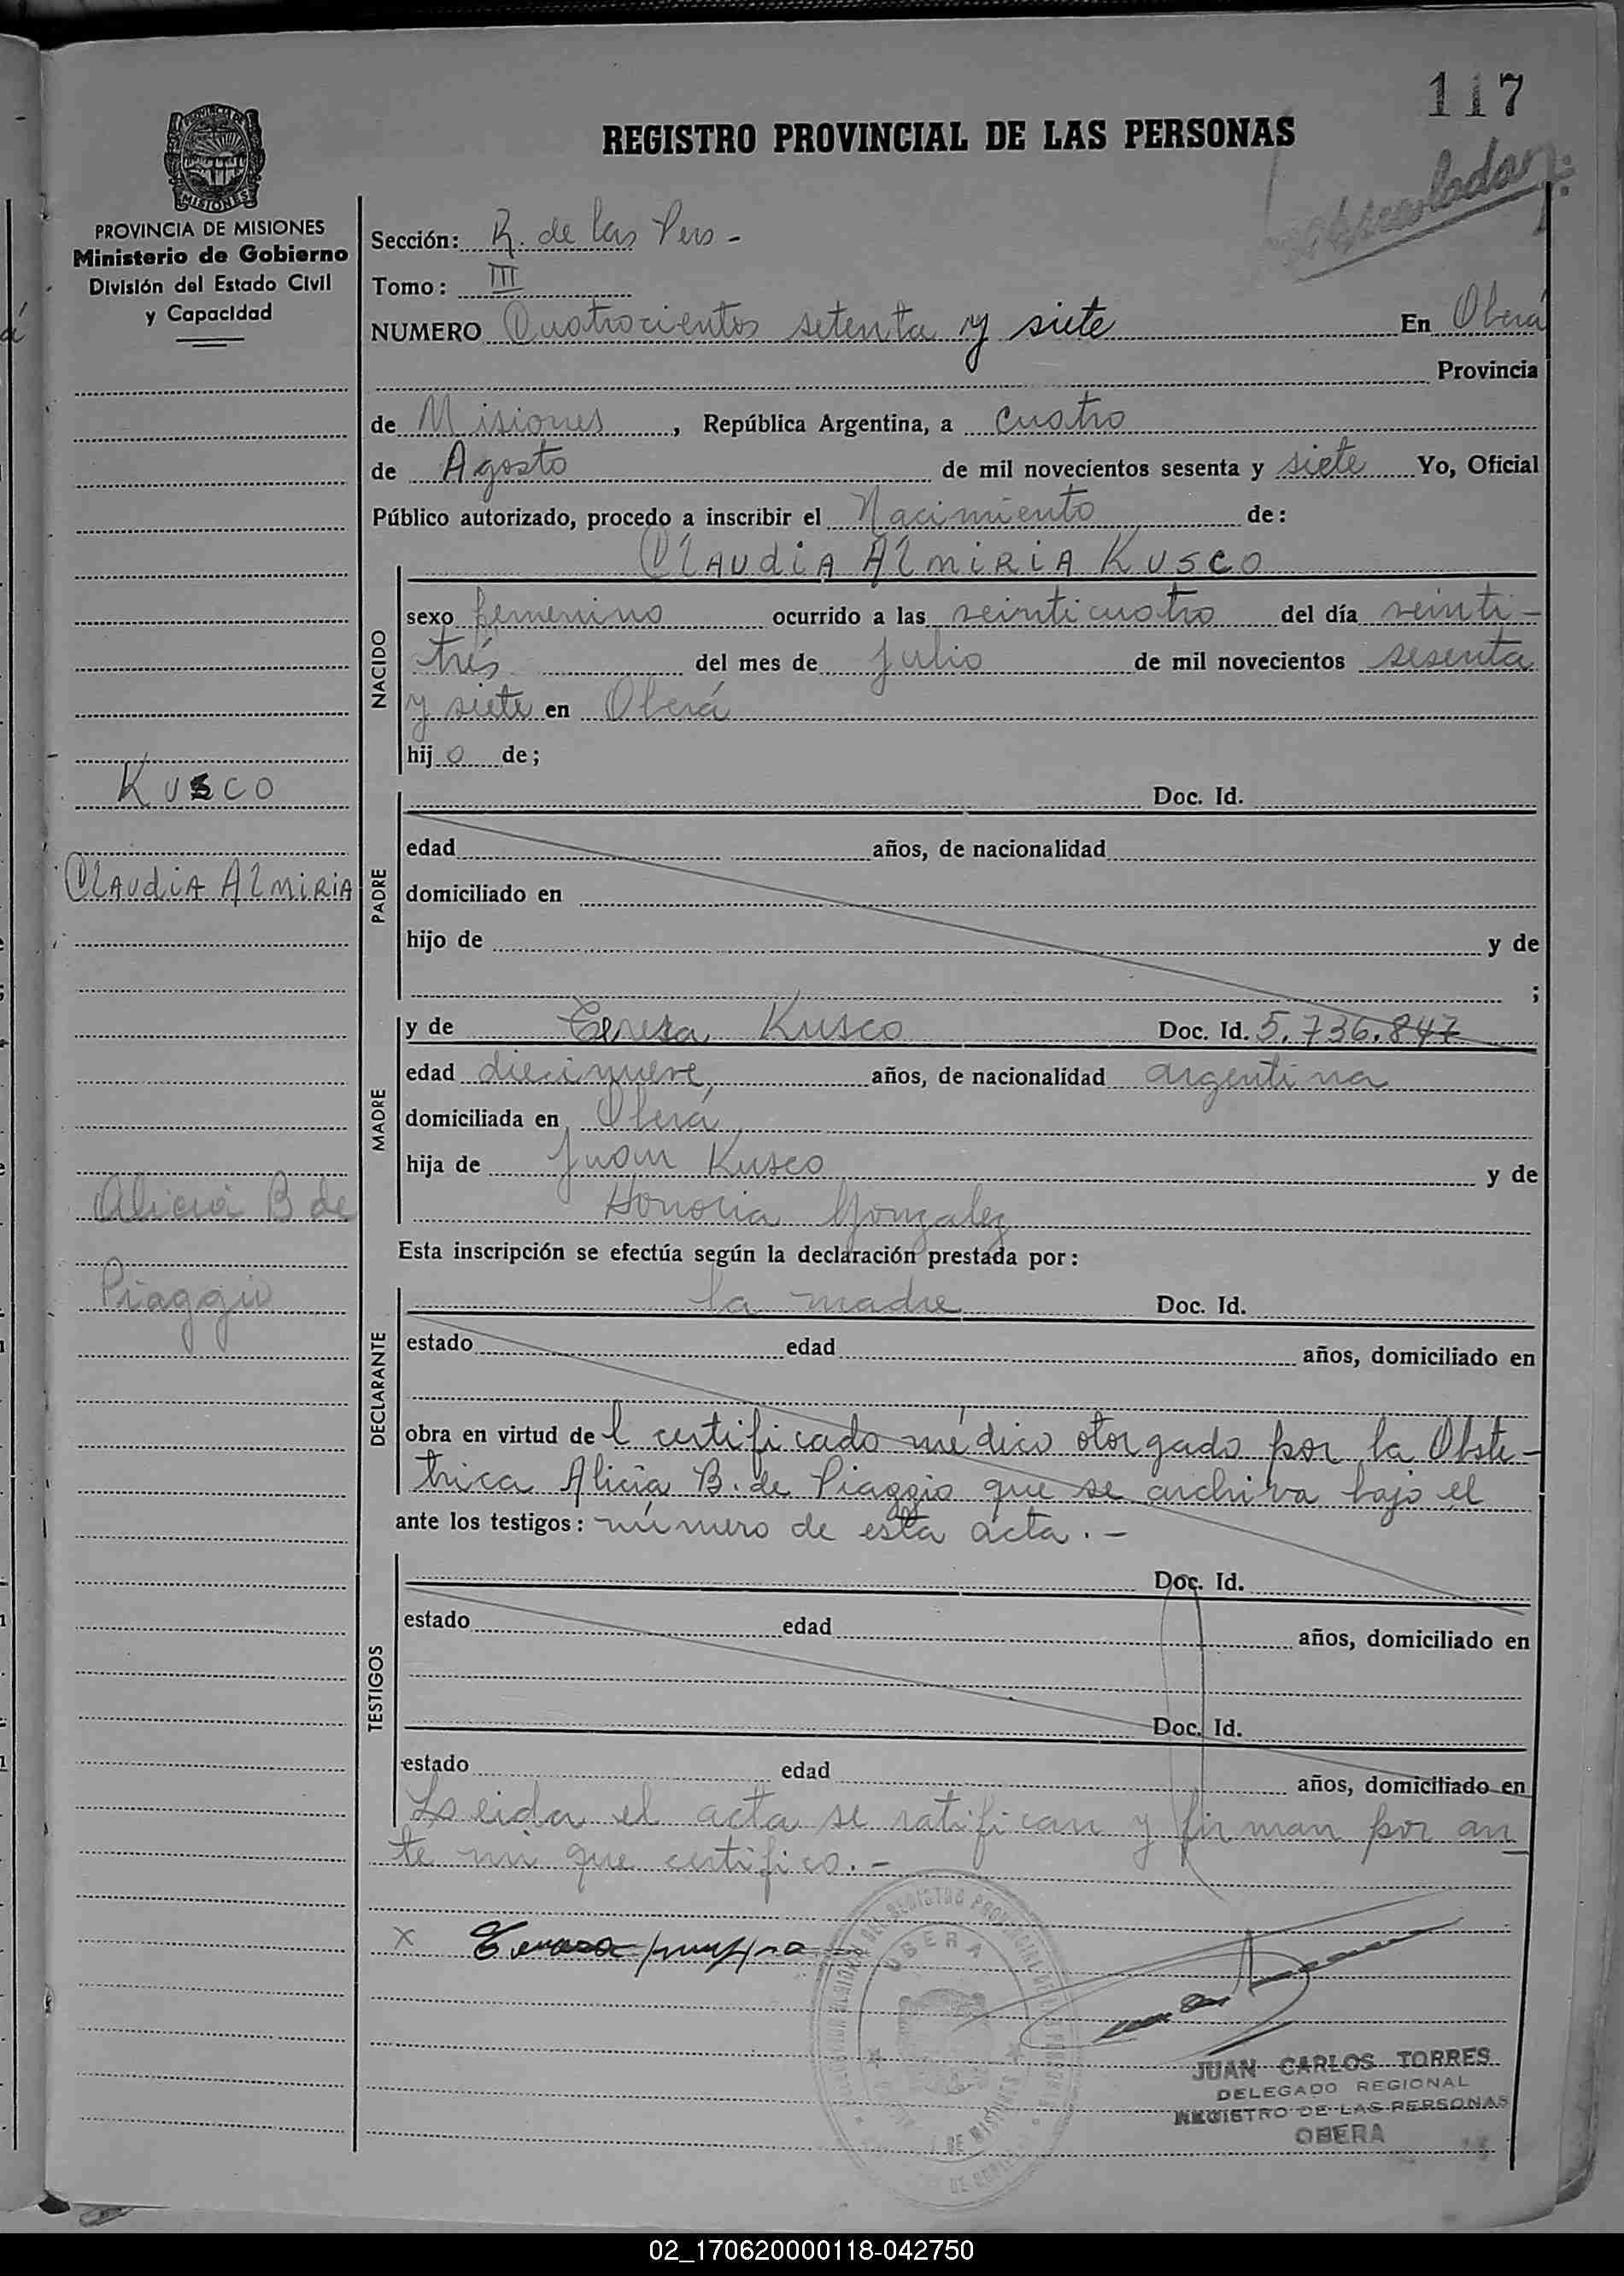 117
REGISTRO PROVINCIAL DE LAS PERSONAS
PROVINCIA DE MISIONES
Ministerio de Gobierno
División del Estado Civil
y Capacidad
Sección: R. de las Pers -
Tomo: III
NUMERO Cuatrocientos setenta y siete En Oberá
Provincia
de Misiones, República Argentina, a cuatro
de Agosto de mil novecientos sesenta y siete Yo, Oficial
Público autorizado, procedo a inscribir el Nacimiento de:
CLAUdiA ALMIRIA KUSCO
NACIDO
sexo femenino ocurrido a las veinticuatro del día veinti-
trés del mes de Julio de mil novecientos sesenta
y siete en Oberá
hij o de;
KUSCO
CLAUdiA ALMIRIA
PADRE
Doc. Id.
edad años, de nacionalidad
domiciliado en
hijo de y de
;
MADRE
y de Teresa Kusco Doc. Id. 5.736.847
edad diecinueve, años, de nacionalidad argentina
domiciliada en Oberá
hija de Juan Kusco y de
Honoria Gonzalez
Alicia B de
Piaggio
Esta inscripción se efectúa según la declaración prestada por:
DECLARANTE
la madre Doc. Id.
estado edad años, domiciliado en
obra en virtud de l certificado médico otorgado por la Obste-
trica Alicia B. de Piaggio que se archiva bajo el
ante los testigos: número de esta acta. -
TESTIGOS
Doc. Id.
estado edad años, domiciliado en
Doc. Id.
estado edad años, domiciliado en
Leida el acta se ratifican y firman por an
te mi que certifico. -
x Teresa
OBERA
JUAN CARLOS TORRES
DELEGADO REGIONAL
REGISTRO DE LAS PERSONAS
OBERA
02_170620000118-042750